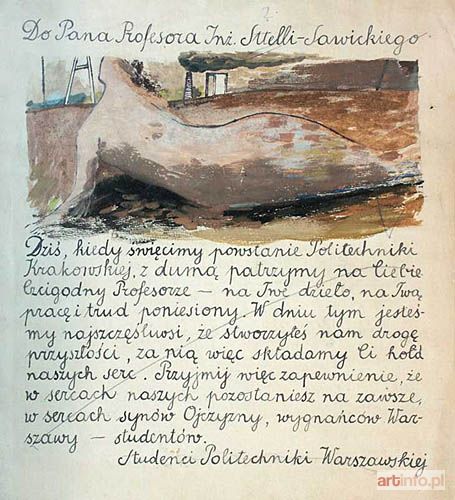 Do Pana Profesora Inż. Stelli-Sawickiego
Dziś, kiedy święcimy powstanie Politechniki
Krakowskiej, z dumą patrzymy na Ciebie
Czcigodny Profesorze – na Twe dzieło, na Twą
pracę i trud poniesiony. W dniu tym jesteś-
my najszczęśliwsi, że stworzyłeś nam drogę
przyszłości, za nią więc składamy Ci hołd
naszych serc. Przyjmij więc zapewnienie, że
w sercach naszych pozostaniesz na zawsze,
w sercach synów Ojczyzny, wygnańców War-
szawy – studentów.
Studenci Politechniki Warszawskiej
artinfo.pl